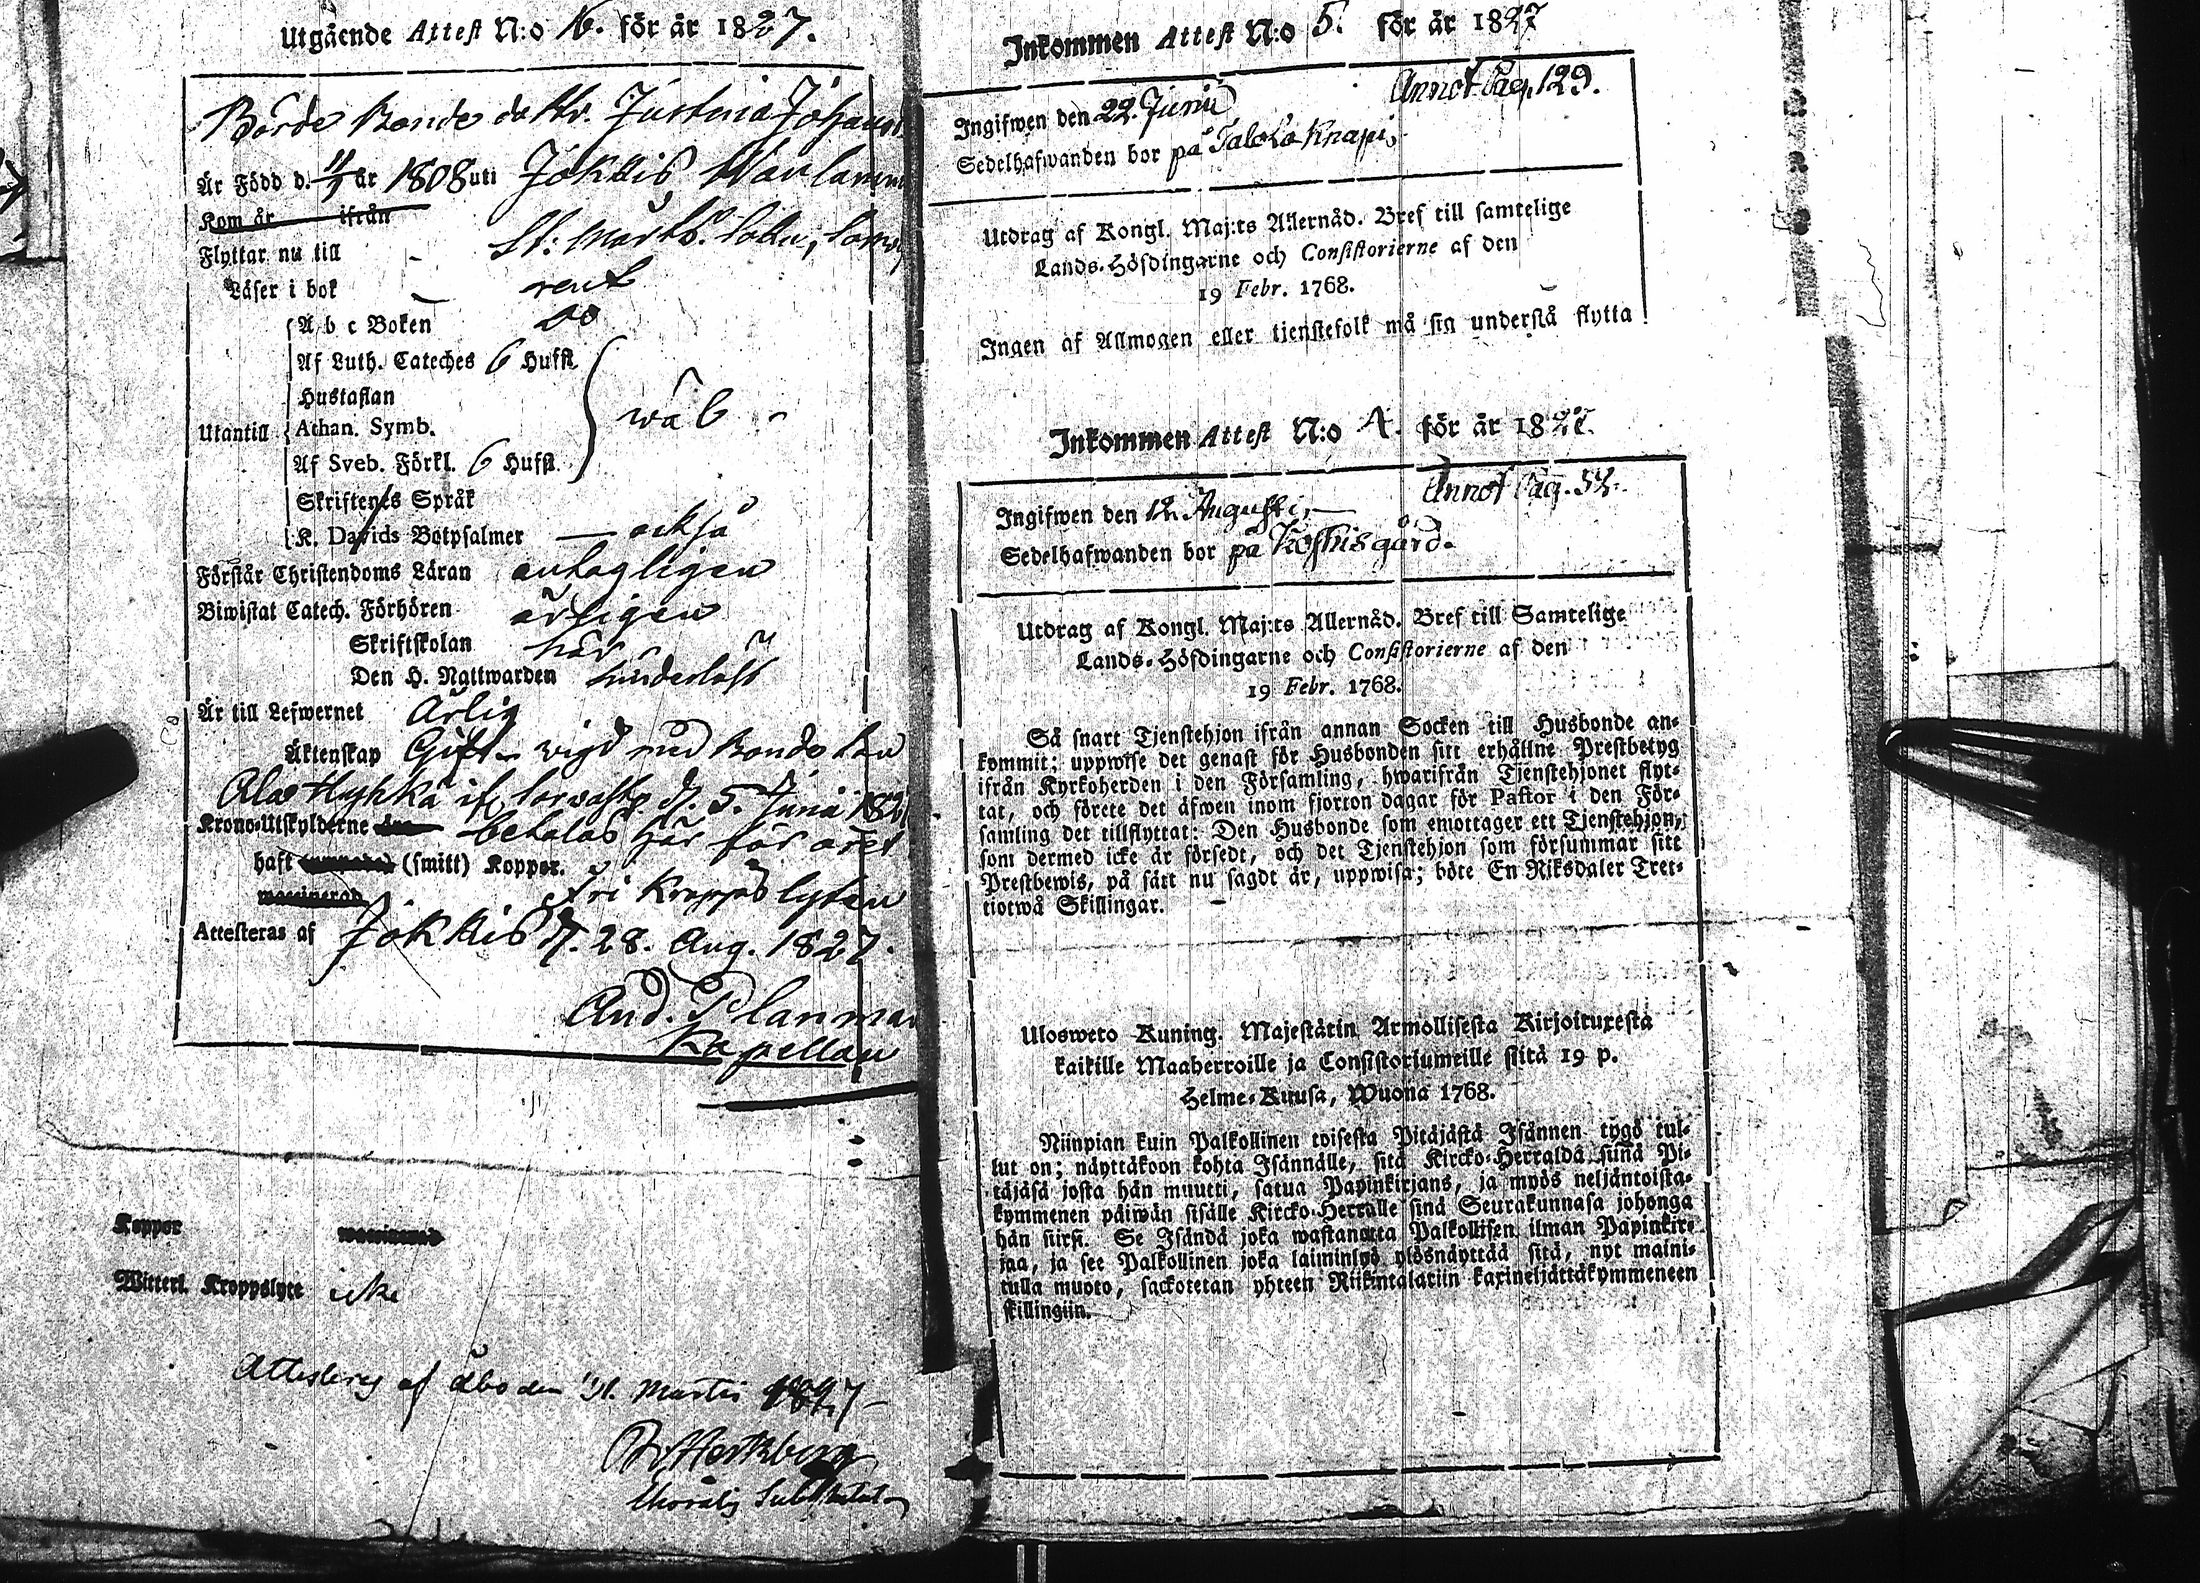 Utgående Attest N:o 16. för år 1827.
Börde Bonde dottr. Justina Johans
Är Född d. 11/7 år 1808 uti Jokkis
Kom år ifrån
Flyttar nu till - St: Mårtens
Läser i bok - rent
A b c Boken do
Af Luth. Cateches 6 Hufst.
Hustaflan
Utantill Athan. Symb. wäl -
Af Sveb. Förkl. 6 Hufst.
Skriftenes Språk
K. Davids Botpsalmer — också
Förstår Christendoms Läran antagligen
Biwistat Catech. Förhören årligen
Skriftskolan här
Den H. Nattwarden hinderlöst
Är till Lefwernet Ärlig
Äktenskap Gift - wigd med Bonde
d. 5. Junii
Krono-Utskylderne betalas här för året
haft (smitt) Koppor.
vaccinerad fri Kroppslyten
Attesteras af Jokkis d. 28. Aug. 1827.
And. Planman
Kapellan
Koppor vaccinerad
Witterl. Kroppslyte icke
Attesteras af Åbo den 31. Martii 1827
Inkommen Attest N:o 5. för år 1827
Annot. Pag. 129.
Ingifwen den 22. Junii
Sedelhafwanden bor på
Utdrag af Kongl. Maj:ts Allernåd. Bref till samtelige
Lands-Höfdingarne och Consistorierne af den
19 Febr. 1768.
Ingen af Allmogen eller tjenstefolk må sig understå flytta
Inkommen Attest N:o 4. för år 1827.
Annot. Pag.
Ingifwen den 12. Augusti
Sedelhafwanden bor på gård.
Utdrag af Kongl. Maj:ts Allernåd. Bref till Samtelige
Lands-Höfdingarne och Consistorierne af den
19 Febr. 1768.
Så snart Tjenstehjon ifrån annan Socken till Husbonde an-
kommit; uppwise det genast för Husbonden sitt erhållne Prestbetyg
ifrån Kyrkoherden i den Församling, hwarifrån Tjenstehjonet flyt-
tat, och förete det äfwen inom fjorton dagar för Pastor i den För-
samling det tillflyttat: Den Husbonde som emottager ett Tjenstehjon,
som dermed icke är försedt, och det Tjenstehjon som försummar sitt
Prestbewis, på sätt nu sagdt är, uppwisa; böte En Riksdaler Tret-
tiotwå Skillingar.
Ulosweto Kuning. Majestätin Armollisesta Kirjoituxesta
kaikille Maaherroille ja Consistoriumeille siitä 19 p.
Helme-Kuusa, Wuona 1768.
Niinpian kuin Palkollinen toisesta Pitäjästä Isännen tygö tul-
lut on; näyttäkoon kohta Isännälle, sitä Kircko-Herralda siinä Pi-
täjäsä josta hän muutti, satua Papinkirjans, ja myös neljäntoista-
kymmenen päiwän sisälle Kircko-Herralle siinä Seurakunnasa johonga
hän siirsi. Se Isändä joka wastanotta Palkollisen ilman Papinkir-
jaa, ja see Palkollinen joka laiminlyö ylösnäyttää sitä, nyt maini-
tulla muoto, sackotetan yhteen Riikintalariin kaxineljättäkymmeneen
skillingiin.